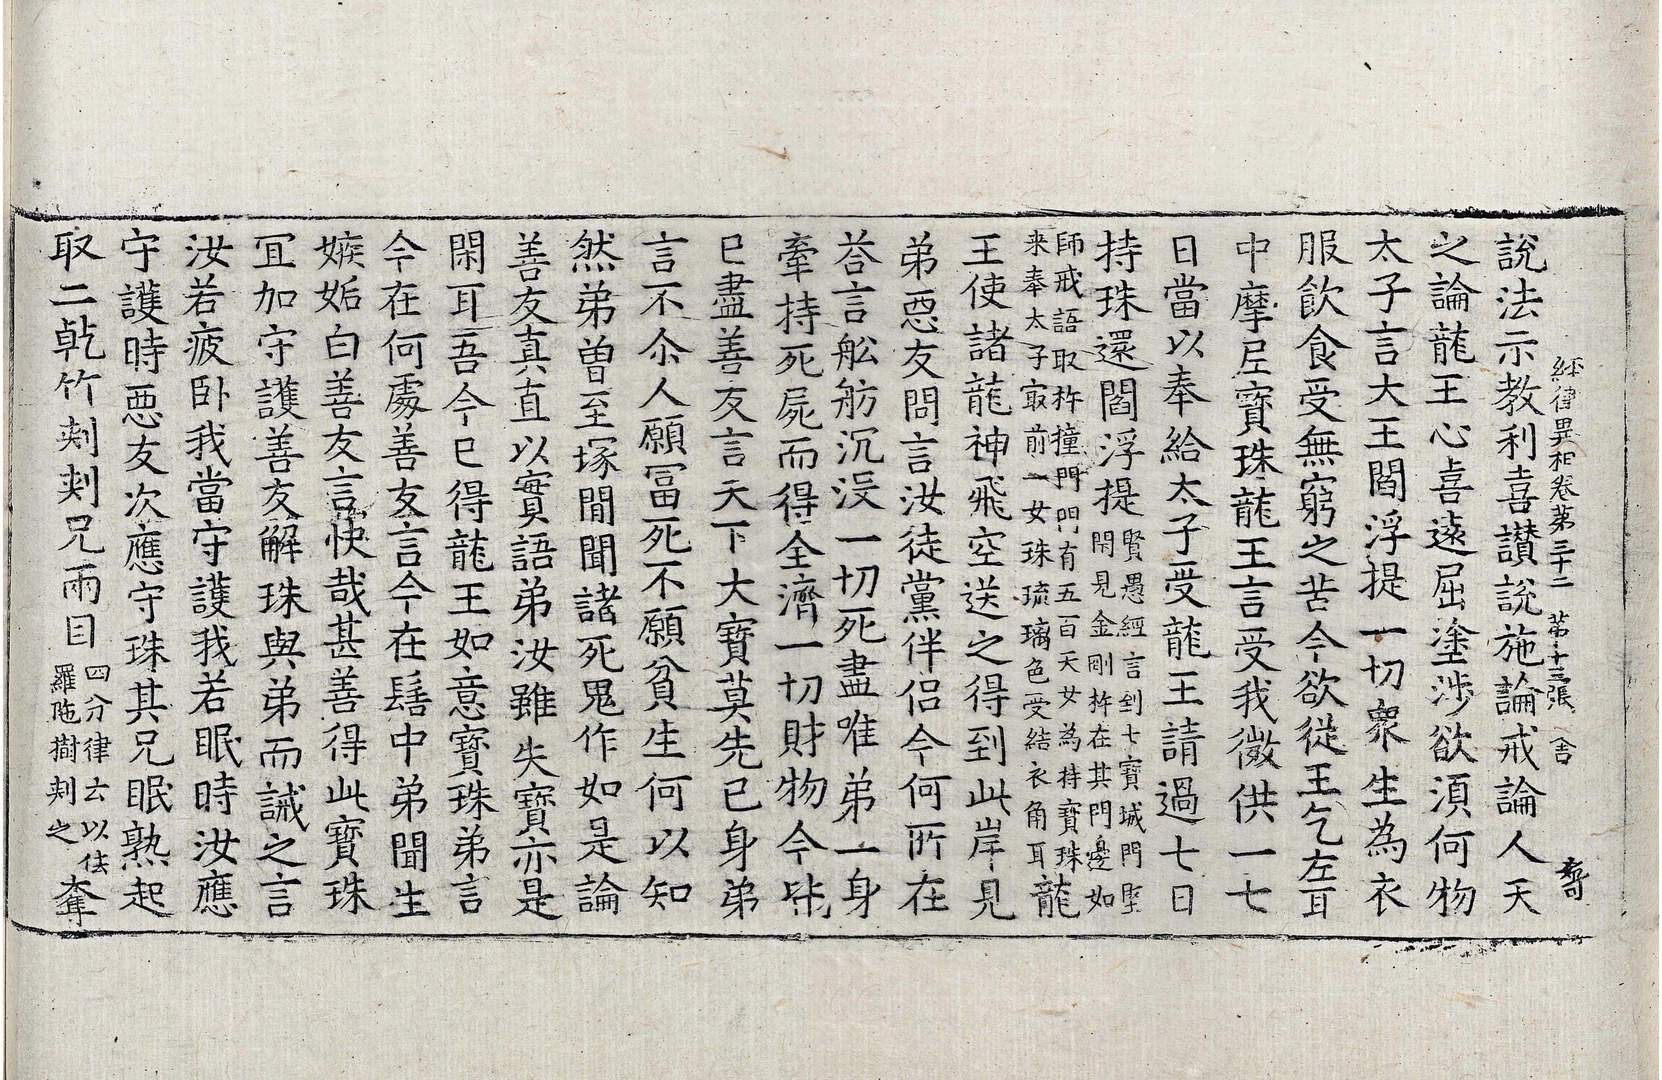 經律異相卷第三十二 第十三張 舍
說法示教利喜讃說施論戒論人天
之論龍王心喜遠屈塗涉欲湏何物
太子言大王閻浮提一切衆生為衣
服飲食受無窮之苦今欲從王乞左耳
中摩尼寶珠龍王言受我微供一七
日當以奉給太子受龍王請過七日
持珠還閻浮提賢愚經言到七寶城門堅
閇見金剛杵在其門邊如
師戒語取杵撞門門有五百天女為持寶珠
来奉太子冣前一女珠琉璃色受結衣角耳龍
王使諸龍神飛空送之得到此岸見
弟惡友問言汝徒黨伴侶今何所在
荅言舩舫沉沒一切死盡唯弟一身
牽持死屍而得全濟一切財物今皆
已盡善友言天下大寶莫先己身弟
言不尒人願冨死不願貧生何以知
然弟曾至塚間聞諸死鬼作如是論
善友真直以實語弟汝雖失寶亦是
閑耳吾今已得龍王如意寶珠弟言
今在何處善友言今在髻中弟聞生
嫉妬白善友言快哉甚善得此寶珠
冝加守護善友解珠與弟而誡之言
汝若疲卧我當守護我若眠時汝應
守護時惡友次應守珠其兄眠熟起
取二乾竹刾刾兄兩目四分律云以佉
羅陁樹刾之奪